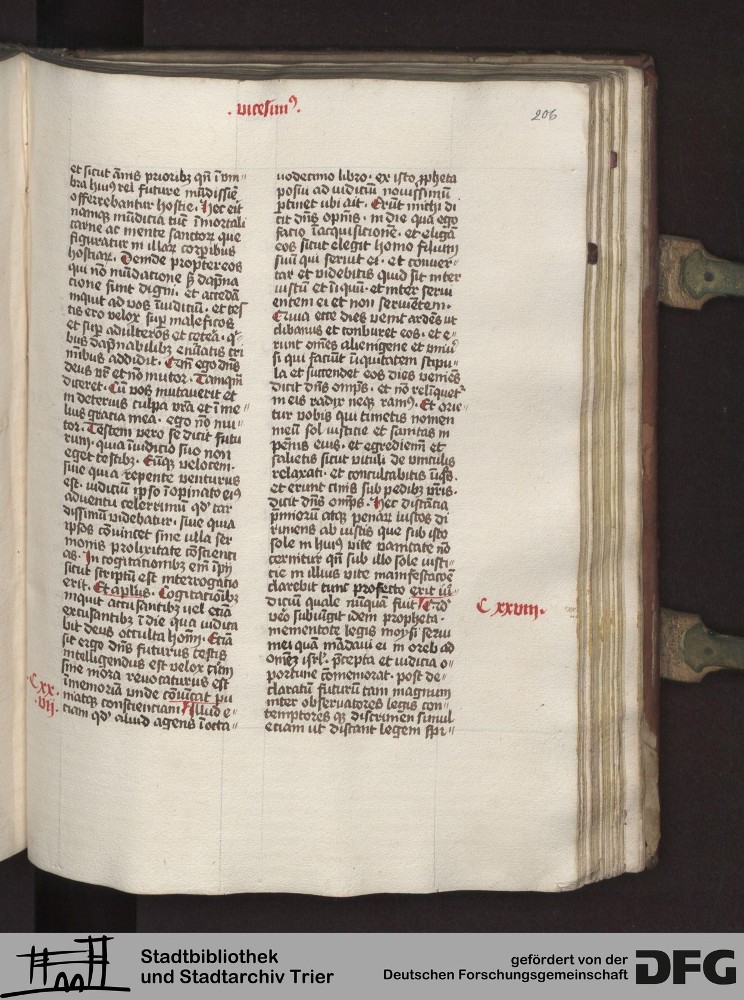 · vicesim⁹ ·
206
et sicut ānis prioribꝫ qn̄ ī vm⸗
bra huiꝰ rei future mūdissie
offerrebantur hostie. Hec eīt
namqꝫ mūdicia tūc ī mortali
carne ac mente sanctoꝝ que
figuratur in illaꝝ corꝑibus
hostiaꝝ. Deinde propter eos
qui nō mūdatione sꝫ dāpna
cione sunt digni. et accedā
inquit ad vos ī iudiciū. et tes
tis ero velox suꝑ maleficos
et suꝑ adulteros et cetera. q
bus dāpnabilibꝫ enūatis cri
minibus addidit. Etem̄ ego dn̄s
deus vr̄ et nō mutor. Tamqm̄
diceret. Cū vos mutauerit et
in deterius culpa vr̄a et ī me⸗
lius gratia mea. ego nō mu⸗
tor. Testem vero se dicit futu
rum. quia ī iudicio suo non
eget testibꝫ. Eūqꝫ velocem.
siue quia repente venturus
est. iudiciū ipso īopinato eiꝰ
aduentu celerrimū qd' tar
dissimū videbatur. siue quia
ipsos cōuincet sine vlla ser
monis prolixitate cōscienti
as. In cogitationibꝫ em̄ īpij
sicut scriptū est interrogacio
erit. Et aplus. Cogitacionibꝫ
inquit accusantibꝫ vel eciā
excusantibꝫ ī die qua iudica
bit deus occulta homī. Eciā
sic ergo dn̄s futurus testis
intelligendus est velox cum
sine mora reuocaturus est
ī memoriam vnde cōuincat pu
niatqꝫ conscienciam Illud e⸗
ciam qd' aliud agens ī octa⸗
C xx
· vij ·
uodecimo libro. ex isto ꝓpheta
posui ad iudiciū nouissimū
ꝑtinet vbi ait. Erūt michi di
cit dn̄s opn̄s. in die qua ego
facio ī acquisicionē. et eligā
eos sicut elegit homo filium
suū qui seruit ei. et conuer⸗
tar et videbitis quid sit inter
iustū et iīquū. et inter serui
entem ei et non seruientem.
Quia ecce dies venit ardēs ut
clibanus et conburet eos. et e⸗
runt om̄es alienigene et vniuˢⁱ
si qui faciūt iīquitatem stipu⸗
la et succendet eos dies veniēs
dicit dn̄s omp̄s. et nō relīquetʳ
in eis radix neqꝫ ramꝰ. Et orie⸗
tur vobis qui timetis nomen
meū sol iusticie et sanitas in
pēnis eius. et egrediemī et
salietis sicut vituli de vinculis
relaxati. et conculcabitis iīqͦs.
et erunt cinis sub pedibꝫ vr̄is.
dicit dn̄s omp̄s. Hec distācia
p̄mioꝝ atqꝫ penaꝝ iustos di
rimens ab iīustis que sub isto
sole in huiꝰ vite vanitate nō
cernitur qn̄ sub illo sole iusti⸗
cie in illius vite manifestacōe
clarebit tunc profecto erit iu⸗
diciū quale nūquā fuit Cͥ d'
vēo subiungit idem propheta.
mementote legis moysi serui
mei quā mādaui ei in oreb ad
omēꝫ isrl'. p̄cepta et iudicia o⸗
portune cōmemorat. post de⸗
claratū futurū tam magnum
inter obseruatores legis con⸗
temptores qꝫ discrimen simul
eciam ut discant legem spi⸗
C xxviij.
Stadtbibliothek
und Stadtarchiv Trier
gefördert von der
Deutschen Forschungsgemeinschaft
DFG